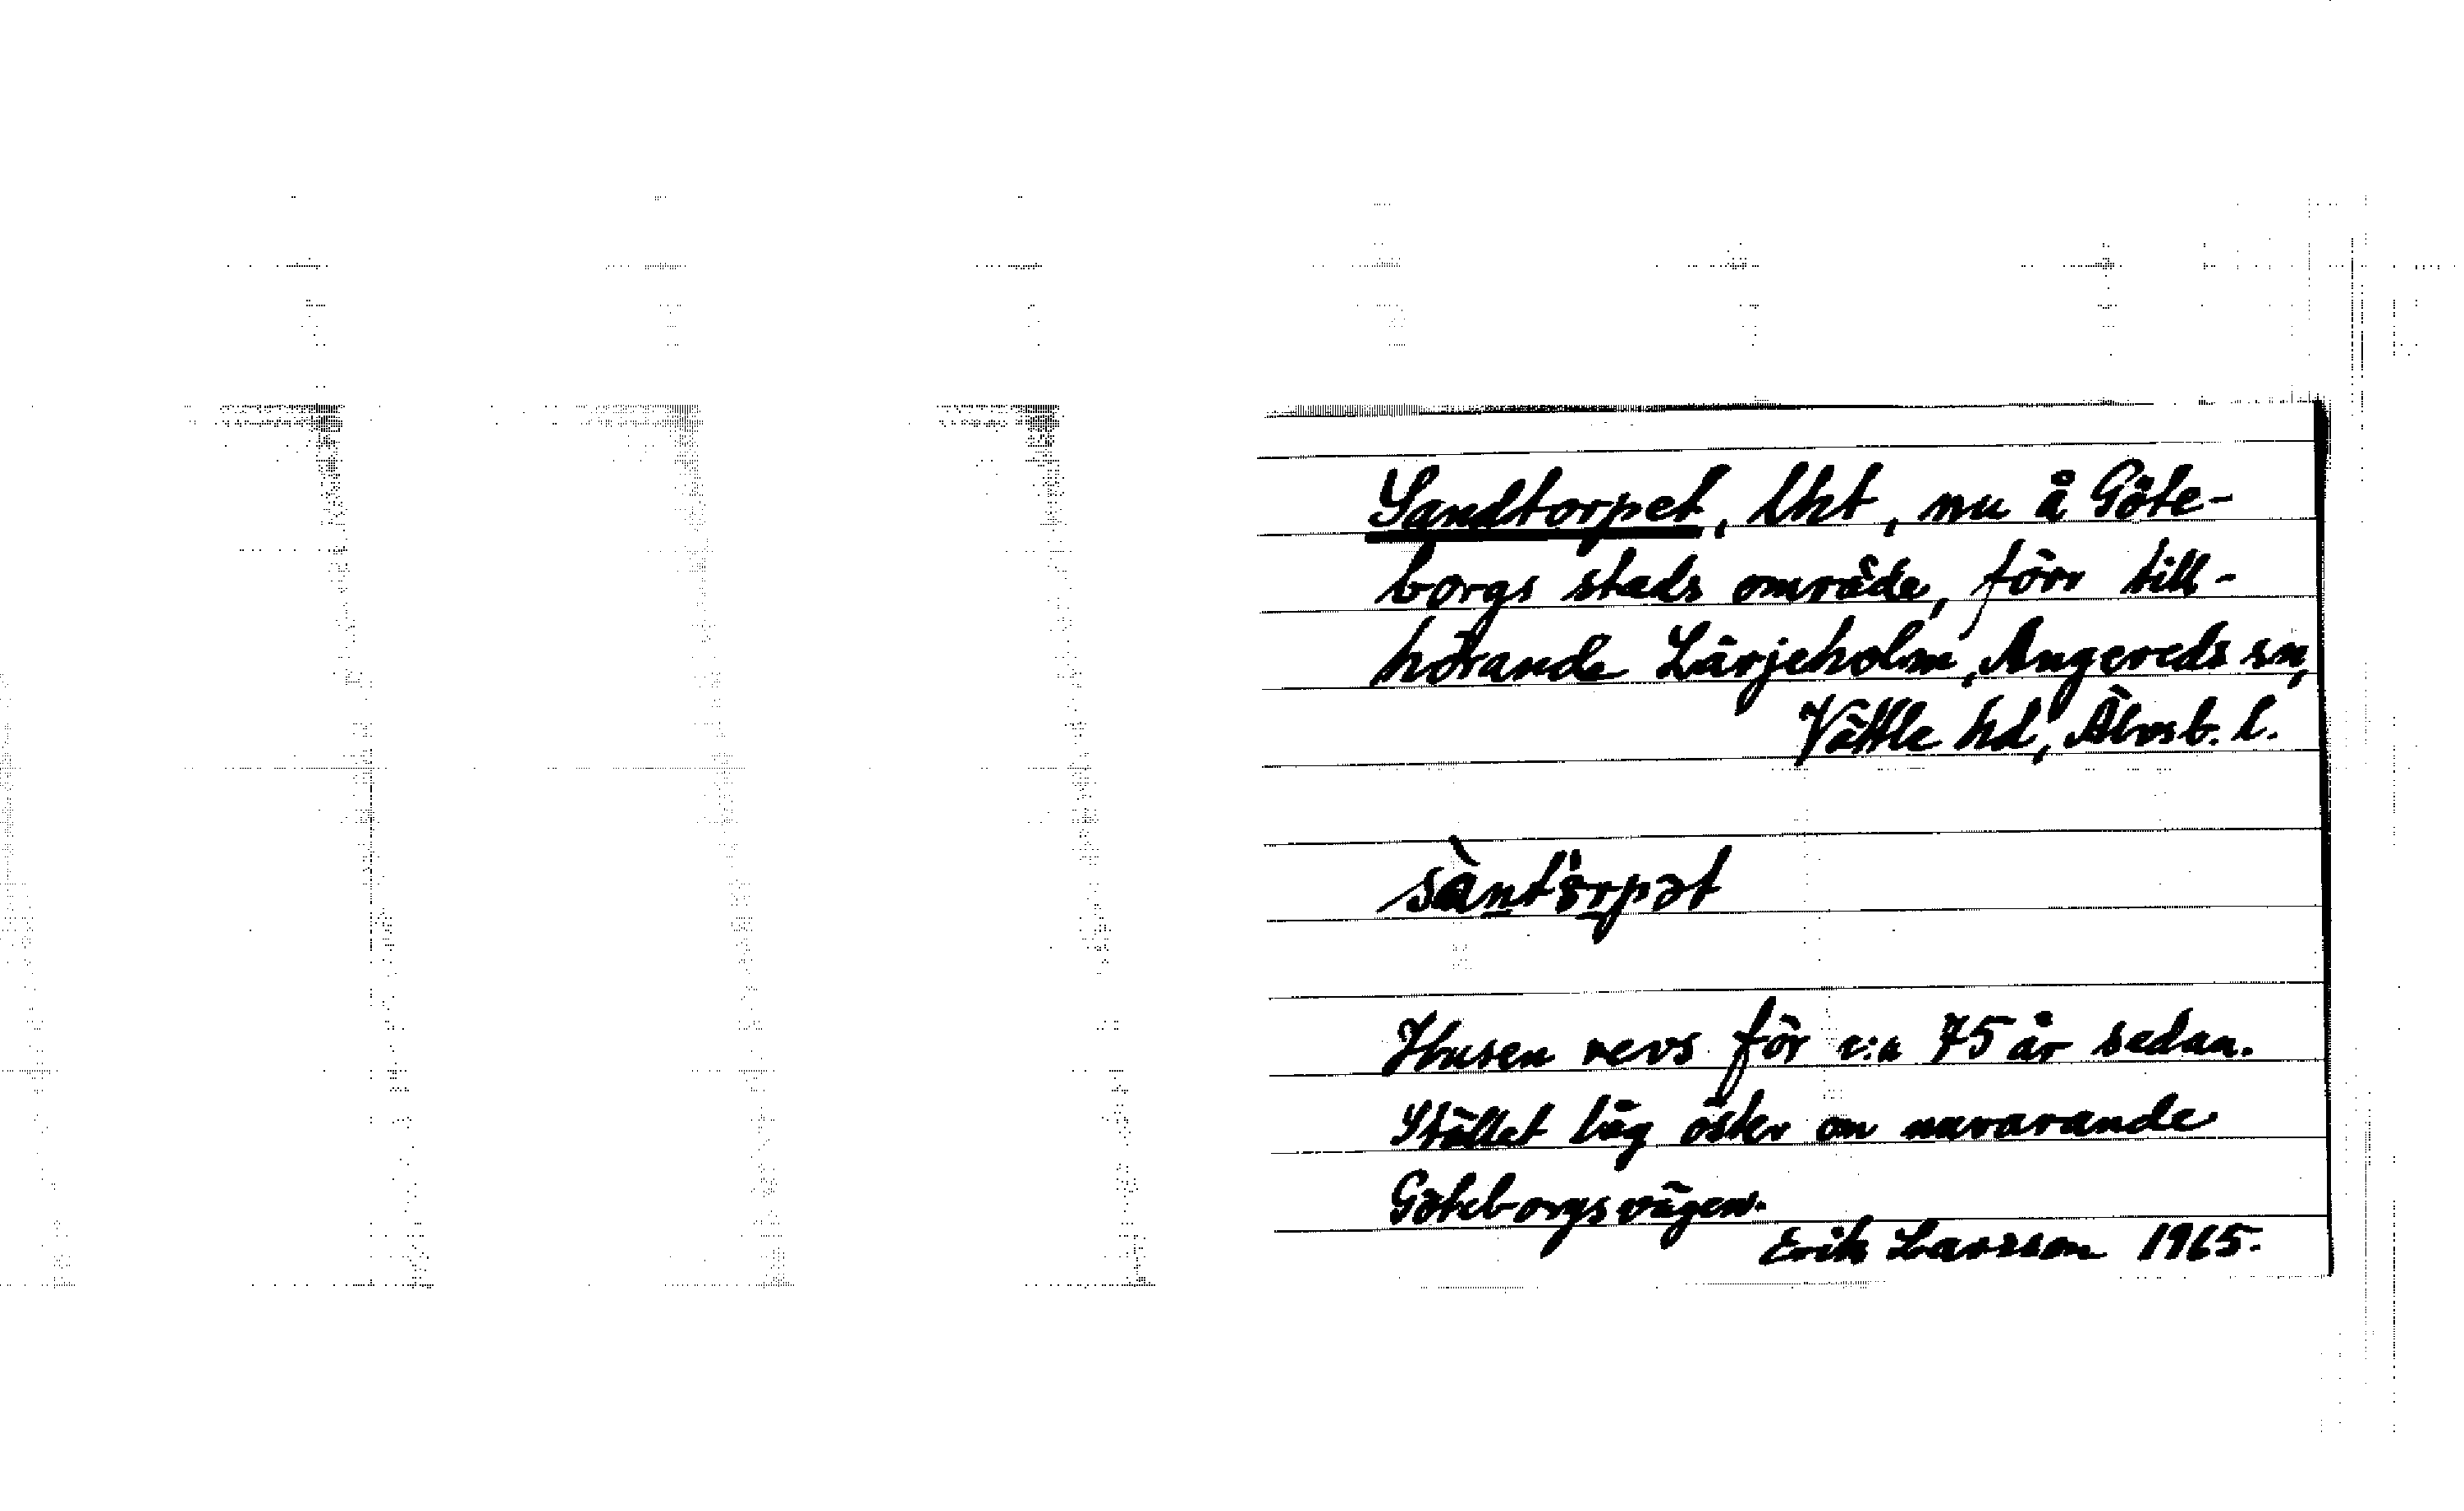 Sandtorpet, lht, nu å Göte-
borgs stads område, förr till-
hörande Lärjeholm, Angereds sn,
Vättle hd, Älvsb. l.
Husen revs för c:a 75 år sedan.
Stället låg öster om nuvarande
Göteborgsvägen.
Erik Larsson 1965.